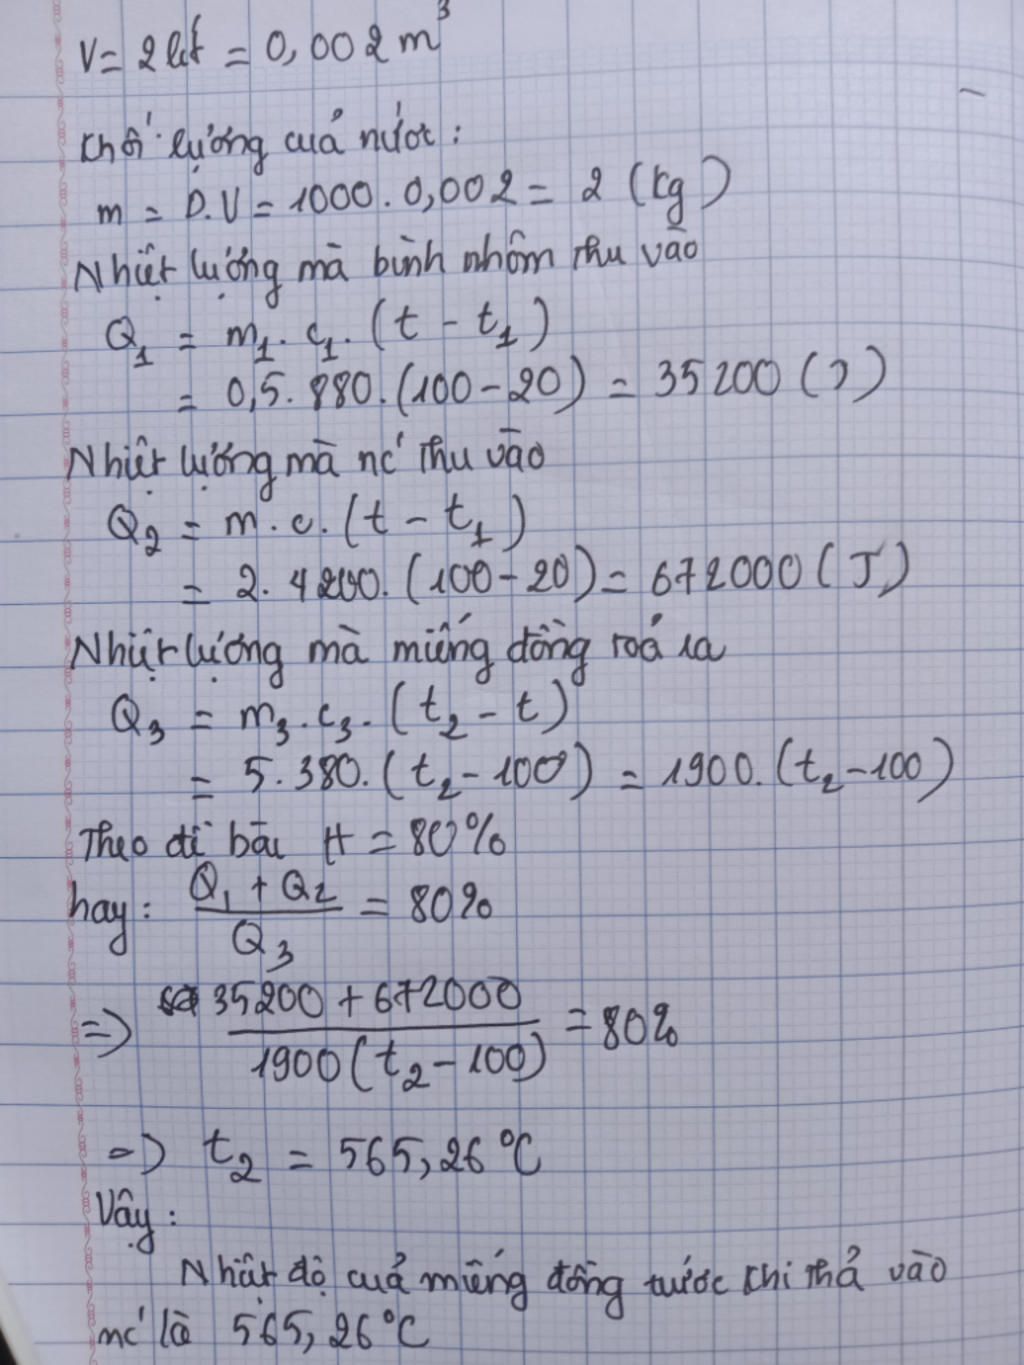 V = 2 lít = 0,002 m³
Khối lượng của nước:
m = D.V = 1000. 0,002 = 2 (kg)
Nhiệt lượng mà bình nhôm thu vào
Q₁ = m₁. c₁. (t - t₁)
= 0,5. 880. (100 - 20) = 35200 (J)
Nhiệt lượng mà nc' thu vào
Q₂ = m. c. (t - t₁)
= 2. 4200. (100 - 20) = 672000 (J)
Nhiệt lượng mà miếng đồng toả ra
Q₃ = m₃. c₃. (t₂ - t)
= 5. 380. (t₂ - 100) = 1900. (t₂ - 100)
Theo đề bài H = 80%
hay: (Q₁ + Q₂)/Q₃ = 80%
=> (35200 + 672000)/(1900(t₂ - 100)) = 80%
=> t₂ = 565,26°C
Vậy:
Nhiệt độ của miếng đồng trước khi thả vào
nc' là 565,26°C